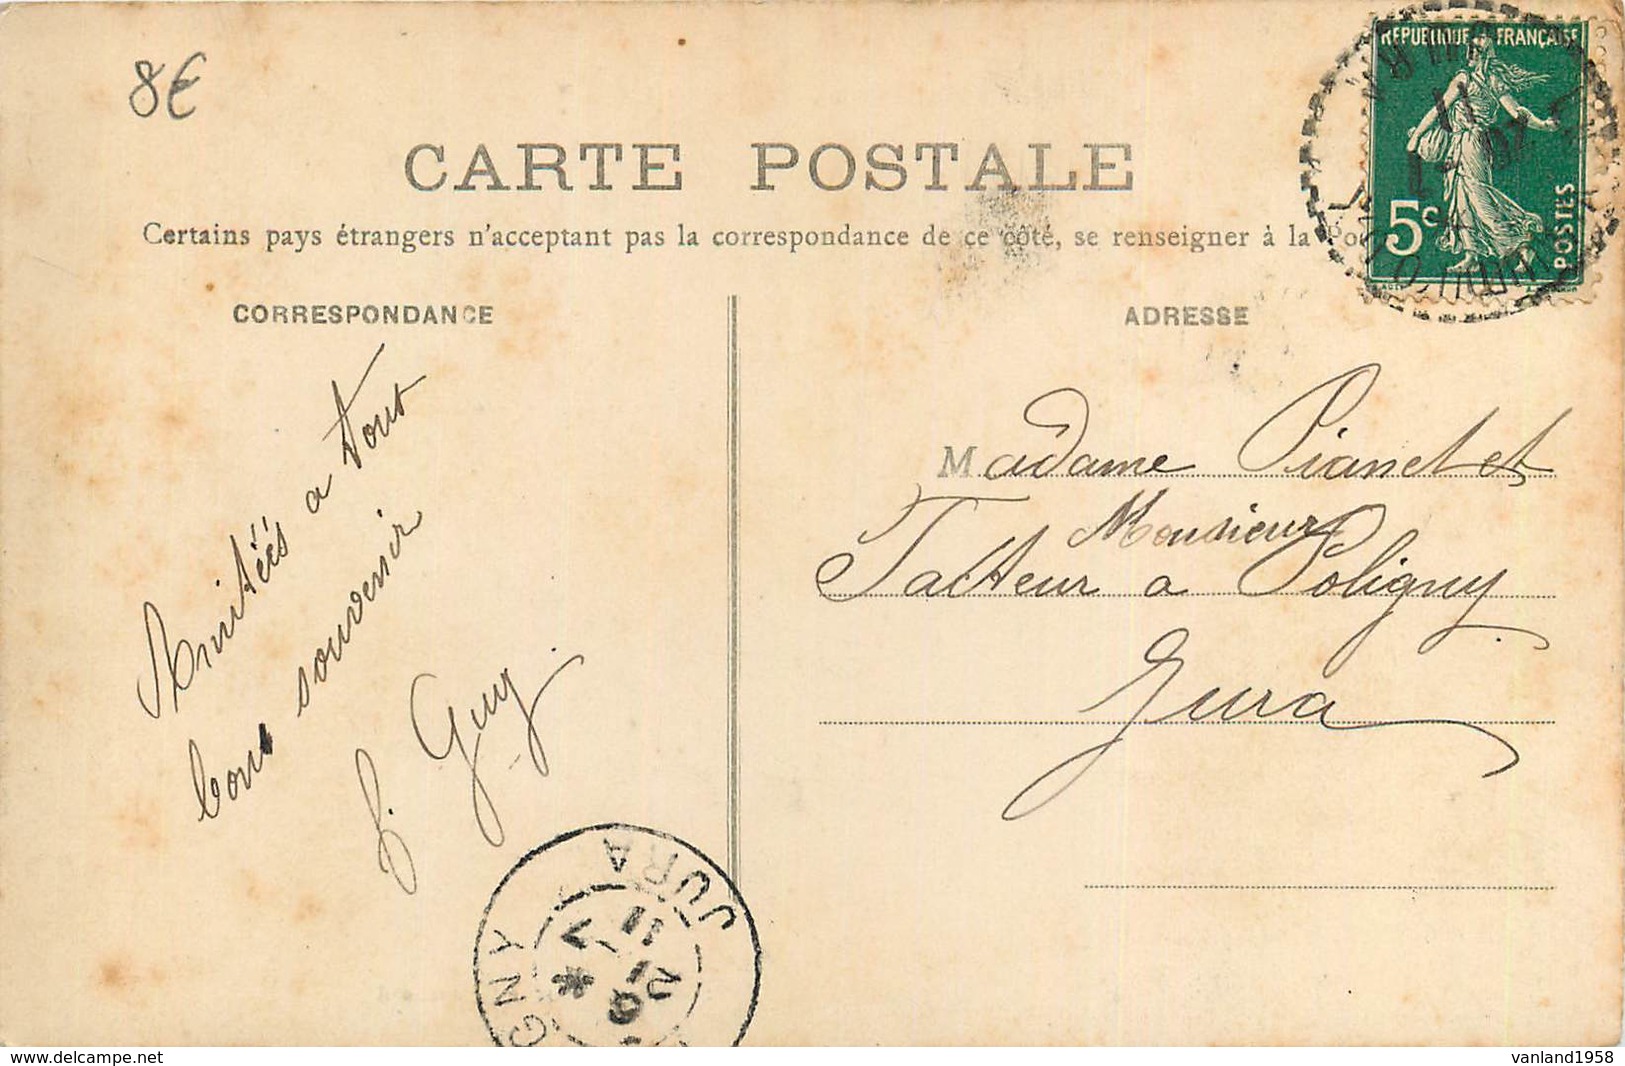 8€
CARTE POSTALE
Certains pays étrangers n'acceptant pas la correspondance de ce côté, se renseigner à la Po
CORRESPONDANCE
ADRESSE
REPUBLIQUE FRANÇAISE
5c
POSTES
Amitiées a tout
bons souvenir
f. Guy
Madame Pianet et
Monsieur
Facteur a Poligny
Jura
JURA
GNY
11
vanland1958